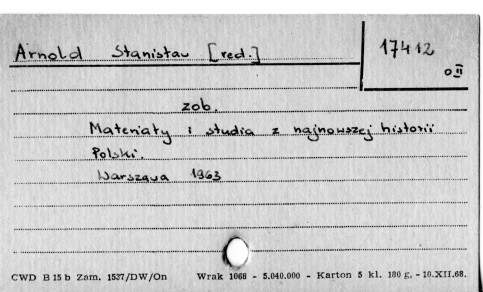 Arnold Stanisław [red.]
17412
o.II
zob.
Materiały i studia z najnowszej historii
Polski.
Warszawa 1963
CWD B 15 b Zam. 1537/DW/On Wrak 1068 - 5.040.000 - Karton 5 kl. 180 g. - 10.XII.68.